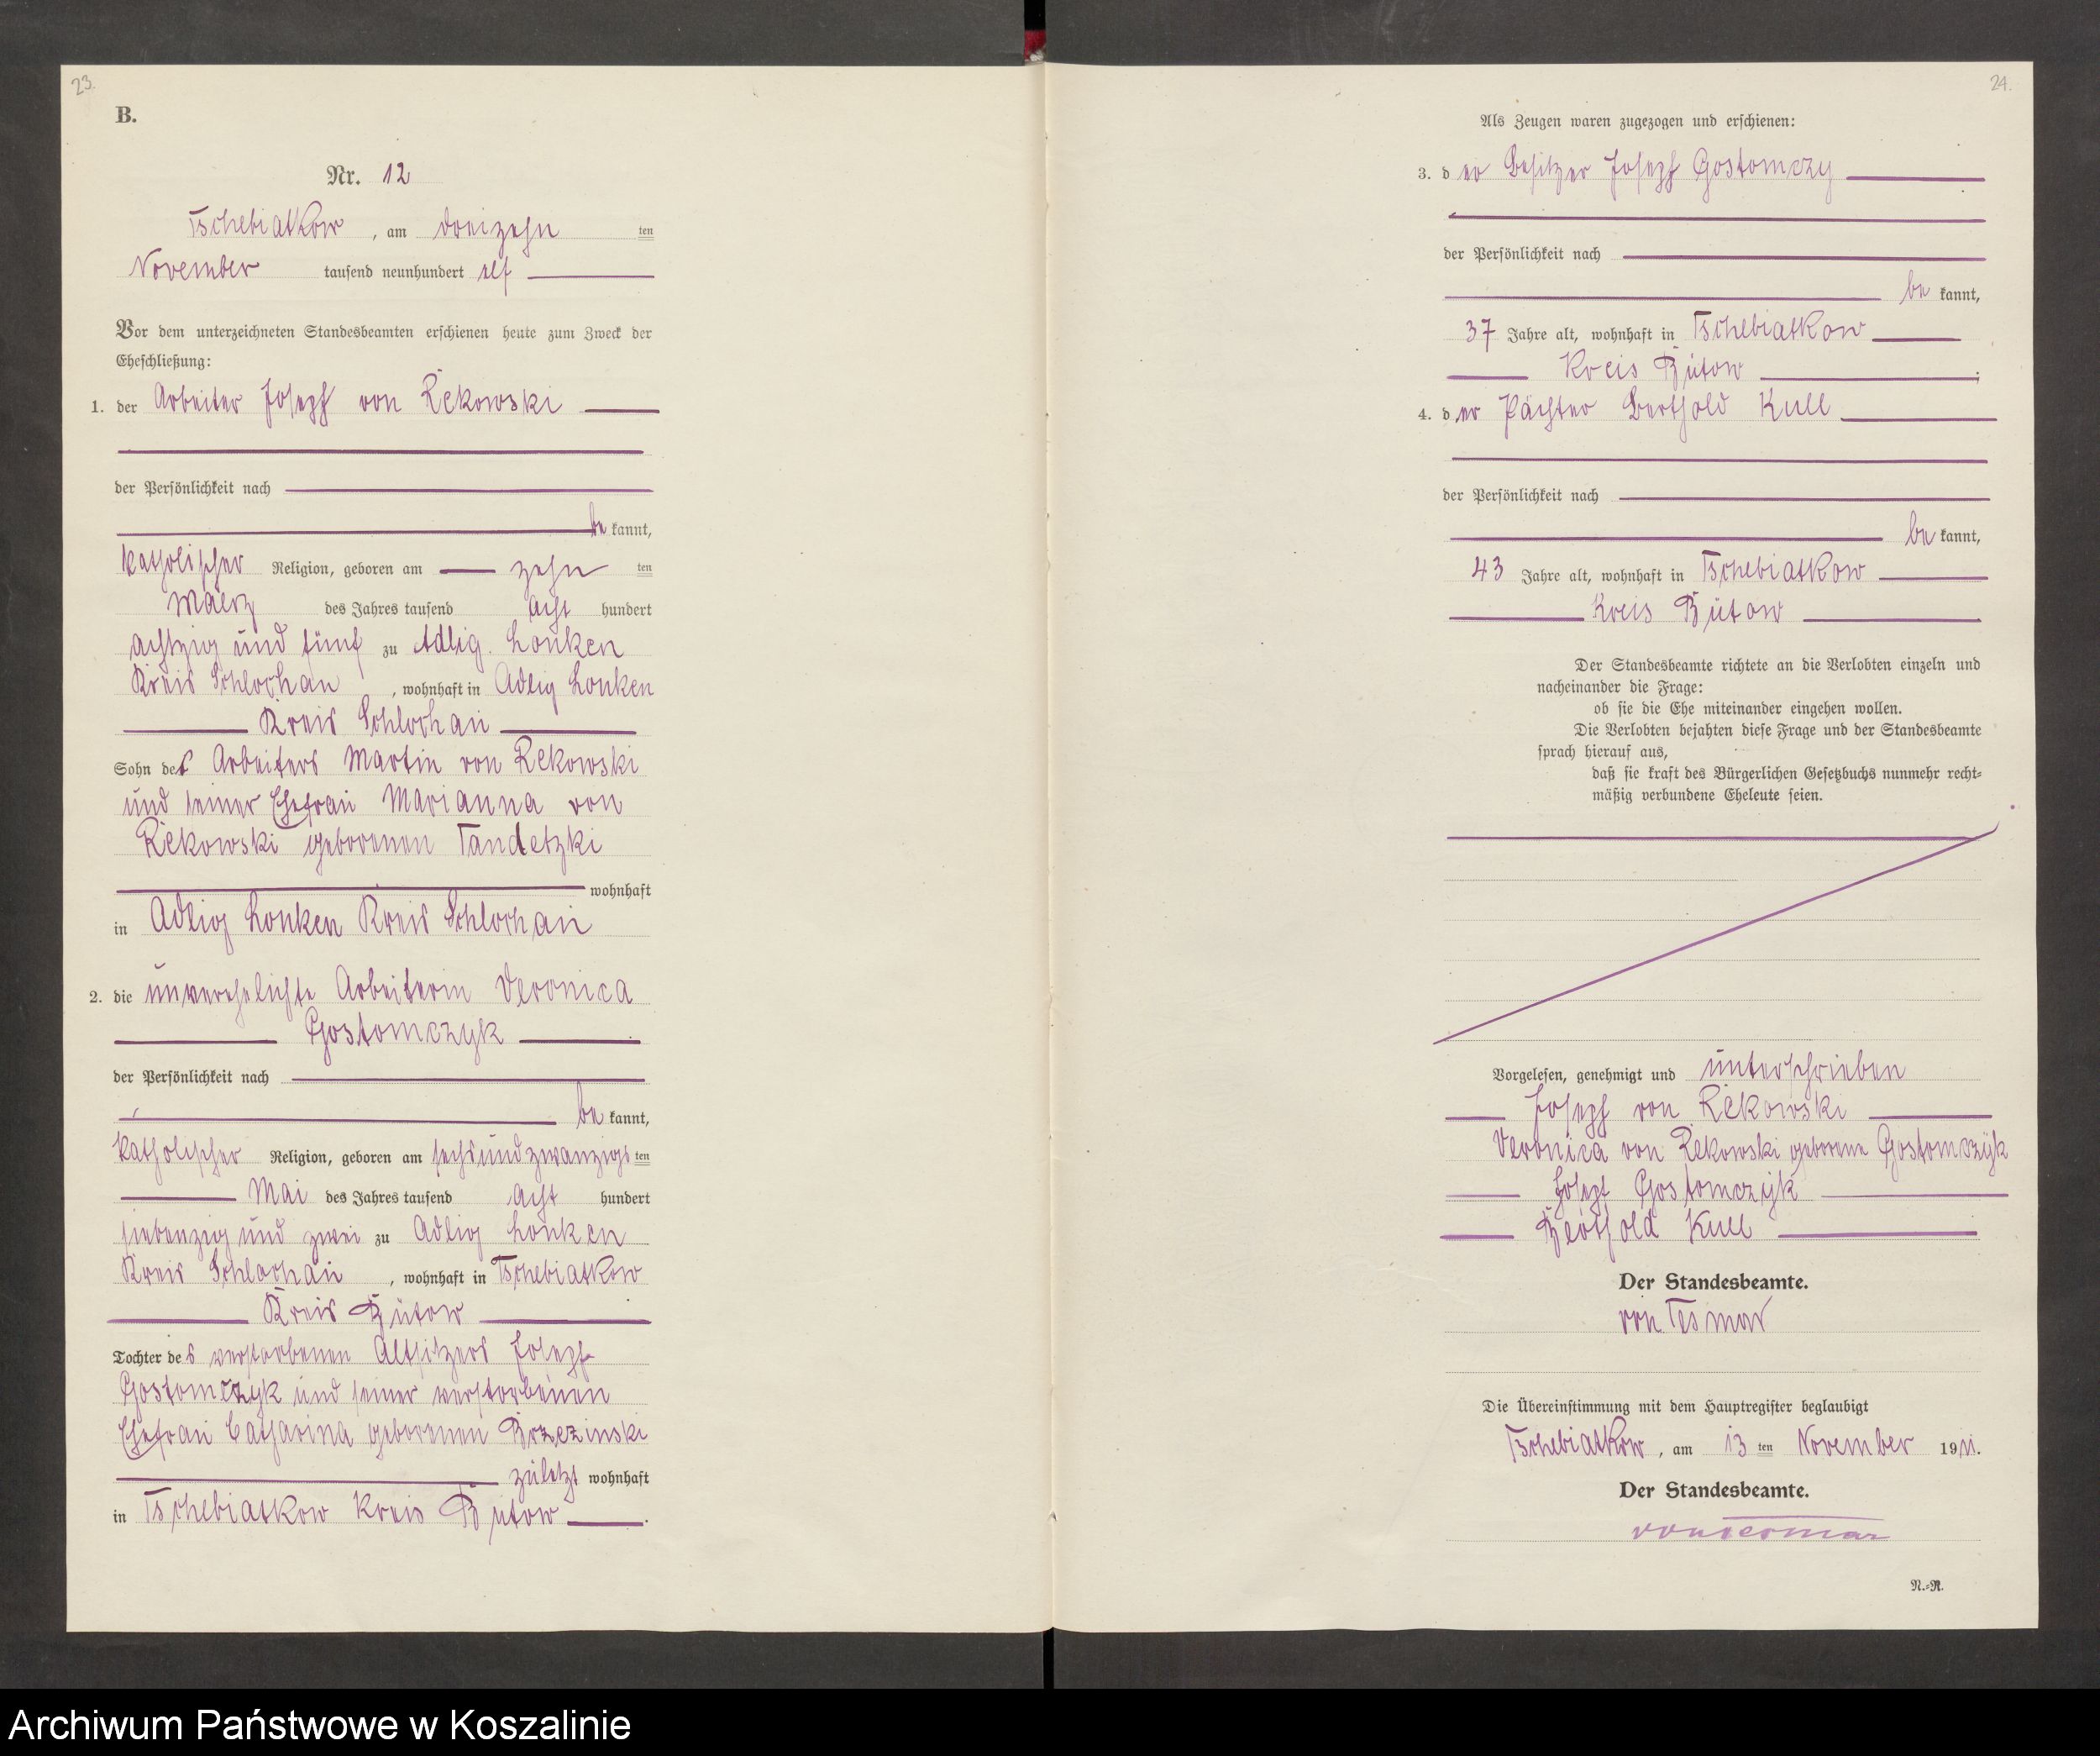 23.
B.
Nr. 12
Tschebiatkow, am dreizehn ten
November tausend neunhundert elf
Vor dem unterzeichneten Standesbeamten erschienen heute zum Zweck der
Eheschließung:
1. der Arbeiter Joseph von Rekowski
der Persönlichkeit nach
be kannt,
katholischer Religion, geboren am zehn ten
Maerz des Jahres tausend acht hundert
achtzig und fünf zu Adlig. Lonken
Kreis Schlochau, wohnhaft in Adlig Lonken
Kreis Schlochau
Sohn des Arbeiters Martin von Rekowski
und seiner Ehefrau Marianna von
Rekowski geborenen Tandetzki
wohnhaft
in Adlig Lonken Kreis Schlochau
2. die unverehelichte Arbeiterin Veronica
Gostomczyk
der Persönlichkeit nach
be kannt,
katholischer Religion, geboren am sechsundzwanzigs ten
Mai des Jahres tausend acht hundert
siebenzig und zwei zu Adlig Lonken
Kreis Schlochau, wohnhaft in Tschebiatkow
Kreis Bütow
Tochter des verstorbenen Altsitzers Joseph
Gostomczyk und seiner verstorbenen
Ehefrau Catharina geborenen Brzezinski
zuletzt wohnhaft
in Tschebiatkow Kreis Bütow.
24.
Als Zeugen waren zugezogen und erschienen:
3. der Besitzer Joseph Gostomczy
der Persönlichkeit nach
be kannt,
37 Jahre alt, wohnhaft in Tschebiatkow
Kreis Bütow;
4. der Pächter Berthold Kull
der Persönlichkeit nach
be kannt,
43 Jahre alt, wohnhaft in Tschebiatkow
Kreis Bütow.
Der Standesbeamte richtete an die Verlobten einzeln und
nacheinander die Frage:
ob sie die Ehe miteinander eingehen wollen.
Die Verlobten bejahten diese Frage und der Standesbeamte
sprach hierauf aus,
daß sie kraft des Bürgerlichen Gesetzbuchs nunmehr recht-
mäßig verbundene Eheleute seien.
Vorgelesen, genehmigt und unterschrieben
Joseph von Rekowski
Veronica von Rekowski geborene Gostomczyk
Josepf Gostomczyk
Berthold Kull
Der Standesbeamte.
von Tesmar
Die Übereinstimmung mit dem Hauptregister beglaubigt
Tschebiatkow, am 13 ten November 1911.
Der Standesbeamte.
von Tesmar
N.-R.
Archiwum Państwowe w Koszalinie